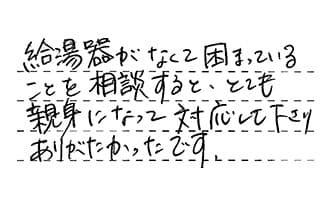 給湯器がなくて困まっている
ことを相談すると、とても
親身になって対応して下さり
ありがたかったです。